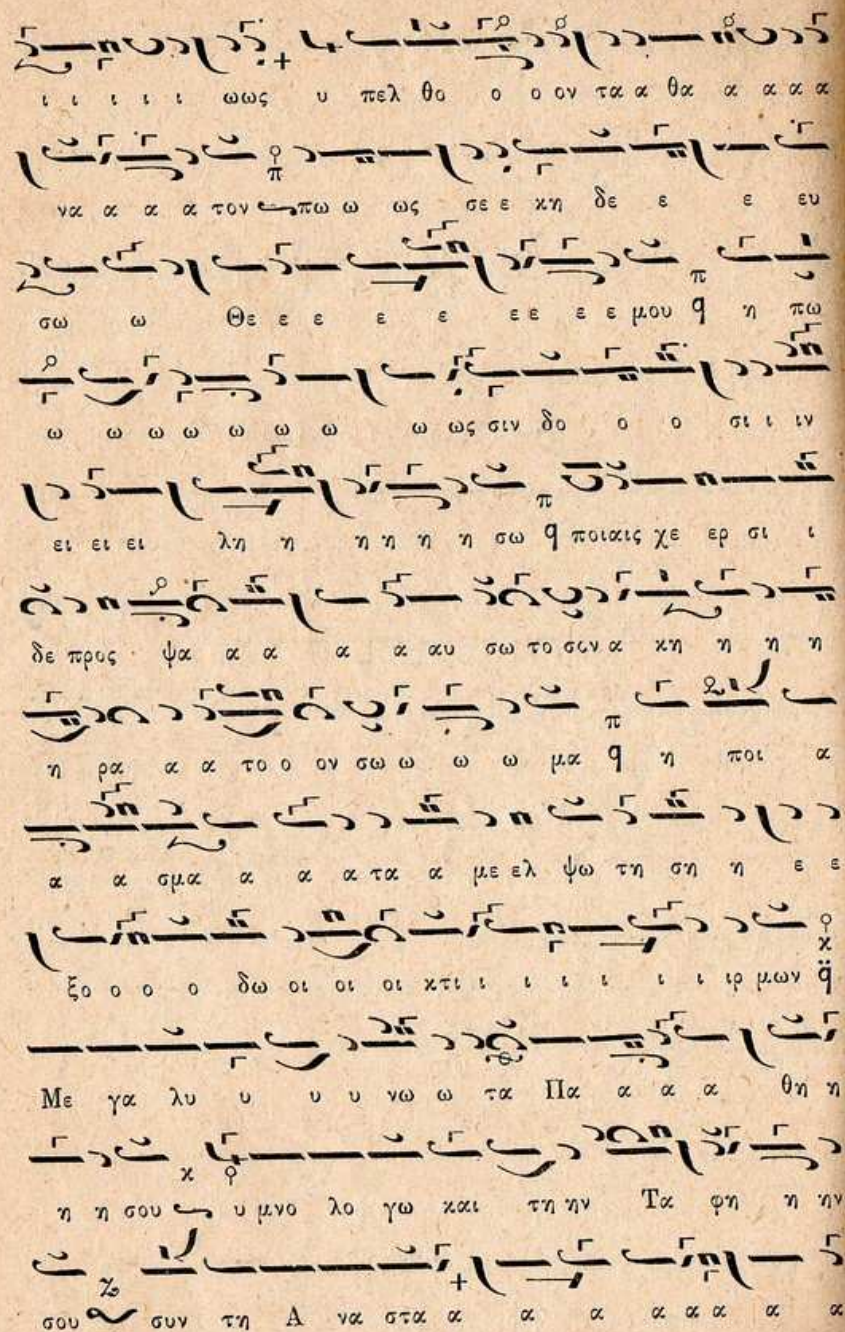 ι ι ι ι ι ωως υ πελ θο ο ο ον τα α θα α α α α
να α α α τον πω ω ως σε ε κη δε ε ε ευ
σω ω Θε ε ε ε ε ε ε ε ε μου η πω
ω ω ω ω ω ω ω ω ως σιν δο ο ο σι ι ιν
ει ει ει λη η η η η η σω ποιαις χε ερ σι ι
δε προς ψα α α α α αυ σω το σον α κη η η η
η ρα α α το ο ον σω ω ω ω μα η ποι α
α α σμα α α α τα α με ελ ψω τη ση η ε ε
ξο ο ο ο δω οι οι οι κτι ι ι ι ι ι ιρ μων
Με γα λυ υ υ υ νω ω τα Πα α α α θη η
η η σου υ μνο λο γω και τη ην Τα φη η ην
σου συν τη Α να στα α α α α α α α α